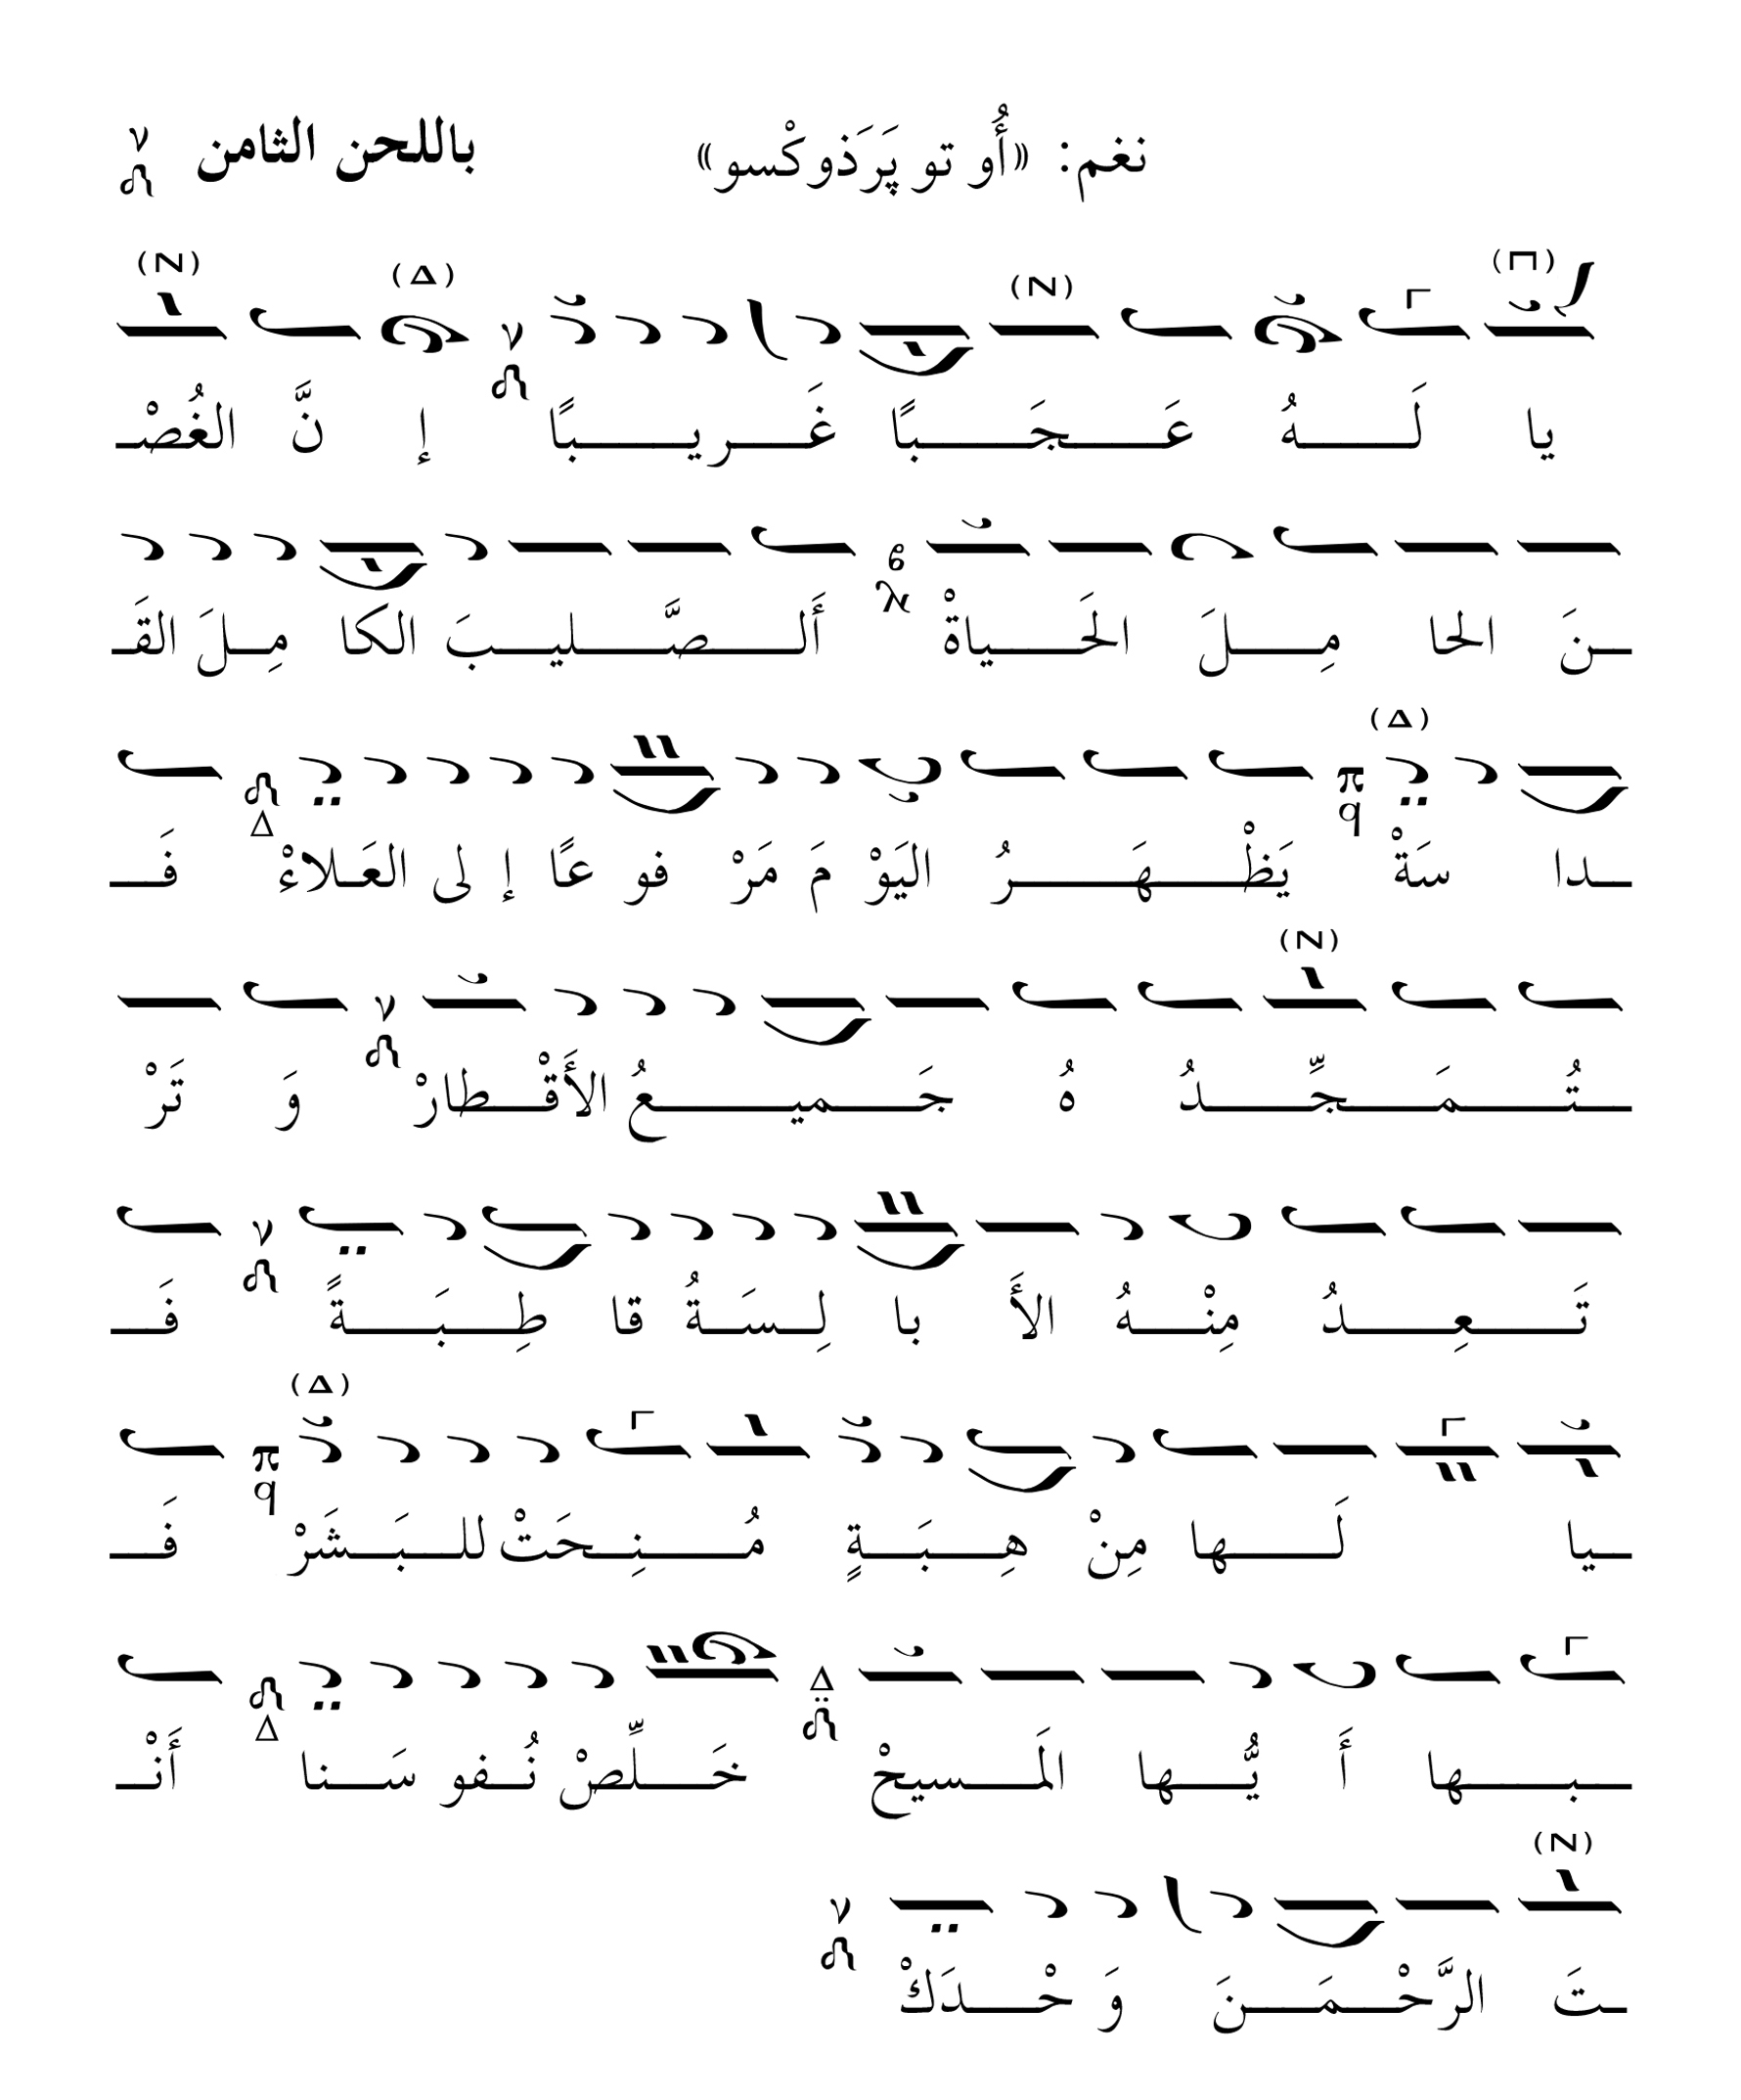 نغم: «أُو تو پَرَذوكْسو» باللحن الثامن
يا لَـــهُ عَـــجَـــبًا غَـــريـــبًا إِ نَّ الغُصْـ
ـنَ الحا مِـــلَ الحَـــياةْ أَلـــصَّـــليـــبَ الكا مِـــلَ القَـ
ـدا سَةْ يَظْـــهَـــرُ اليَوْ مَ مَرْ فو عًا إِ لى العَـــلاءْ فَـ
ـتُـــمَـــجِّـــدُ هُ جَـــميـــعُ الأَقْـــطارْ وَ تَرْ
تَـــعِـــدُ مِنْـــهُ الأَ با لِـــسَـــةُ قا طِـــبَـــةً فَـ
ـيا لَـــها مِنْ هِـــبَـــةٍ مُـــنِـــحَتْ للـــبَـــشَرْ فَـ
ـبـــها أَ يُّـــها المَـــسيحْ خَـــلِّصْ نُـــفو سَـــنا أَنْـ
ـتَ الرَّحْـــمَـــنَ وَ حْـــدَكْ